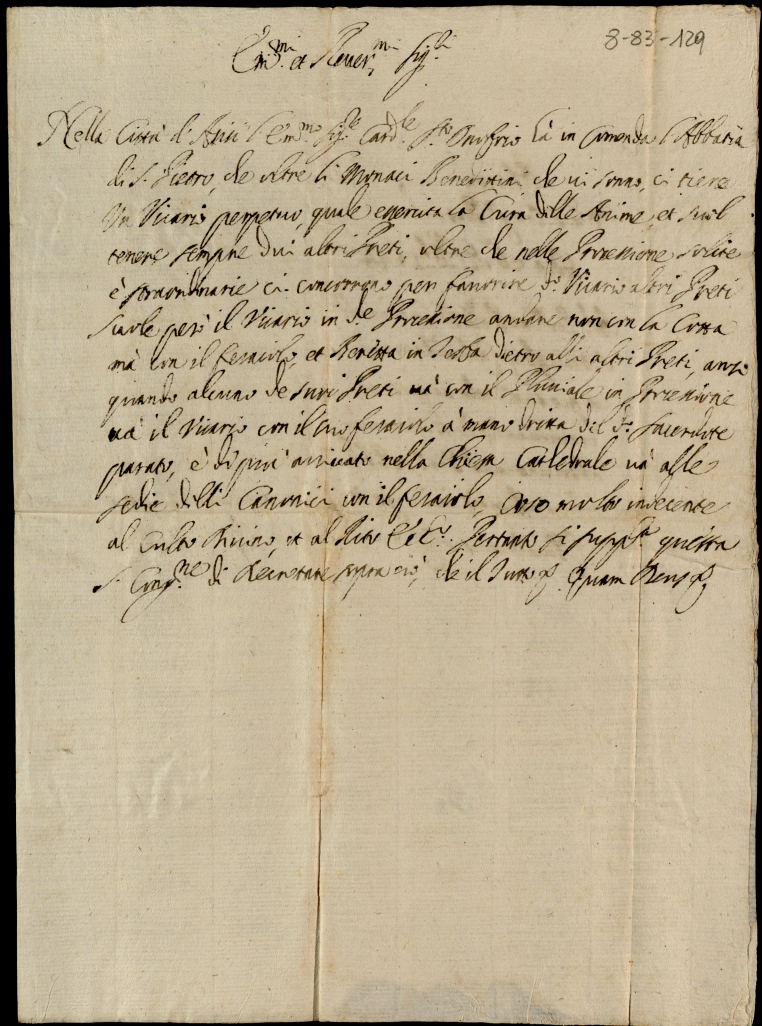 8-83-129
Em.mi et Rever.mi Sig.ri
Nella Città d'Assisi l'Em.mo Sig.re Card.le S.to Onofrio hà in Comenda l'Abbatia
di S. Pietro, che oltre li Monaci Benedittini che vi sonno, ci tiene
Un Vicario perpetuo, quale essercita la Cura delle Anime, et suol
tenere sempre dui altri Preti, oltre che nelle Processione solite
è straordinarie ci concorrono per favorire d.o Vicario altri Preti
suole però il Vicario in d.e Processione andare non con la Cotta
mà con il feraiolo, et Beretta in Testa dietro alli altri Preti, anzi
quando alcuno de suoi Preti và con il Pluviale in Processione
và il Vicario con il suo feraiolo à mano dritta del d.o Sacerdote
parato, è di più arrivato nella Chiesa Cathedrale và alle
sedie delli Canonici con il feraiolo, Cose molto indecente
al Culto Divino, et al Rito Pertanto si supp.ca questa
S. Cong.ne di Decretare sopra ciò, che il Tutto Quam Deus